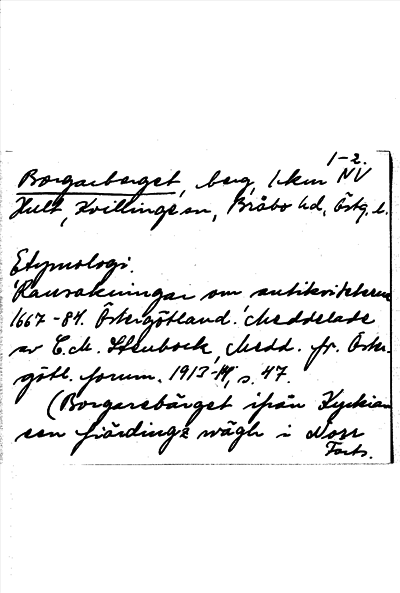 1-2.
Borgareberget, berg, 1 km NV
Hult, Kvillinge sn, Bråbo hd, Östg. l.
Etymologi.
'Ransakningar om antikviteterna
1667-84. Östergötland.' Meddelade
av C.M. Stenbock, Medd. fr. Öster-
götl. fornm. 1913-14, s. 47.
(Borgarebärget ifrån Kyrkian
een fiärdings wägh i Norr
Forts.